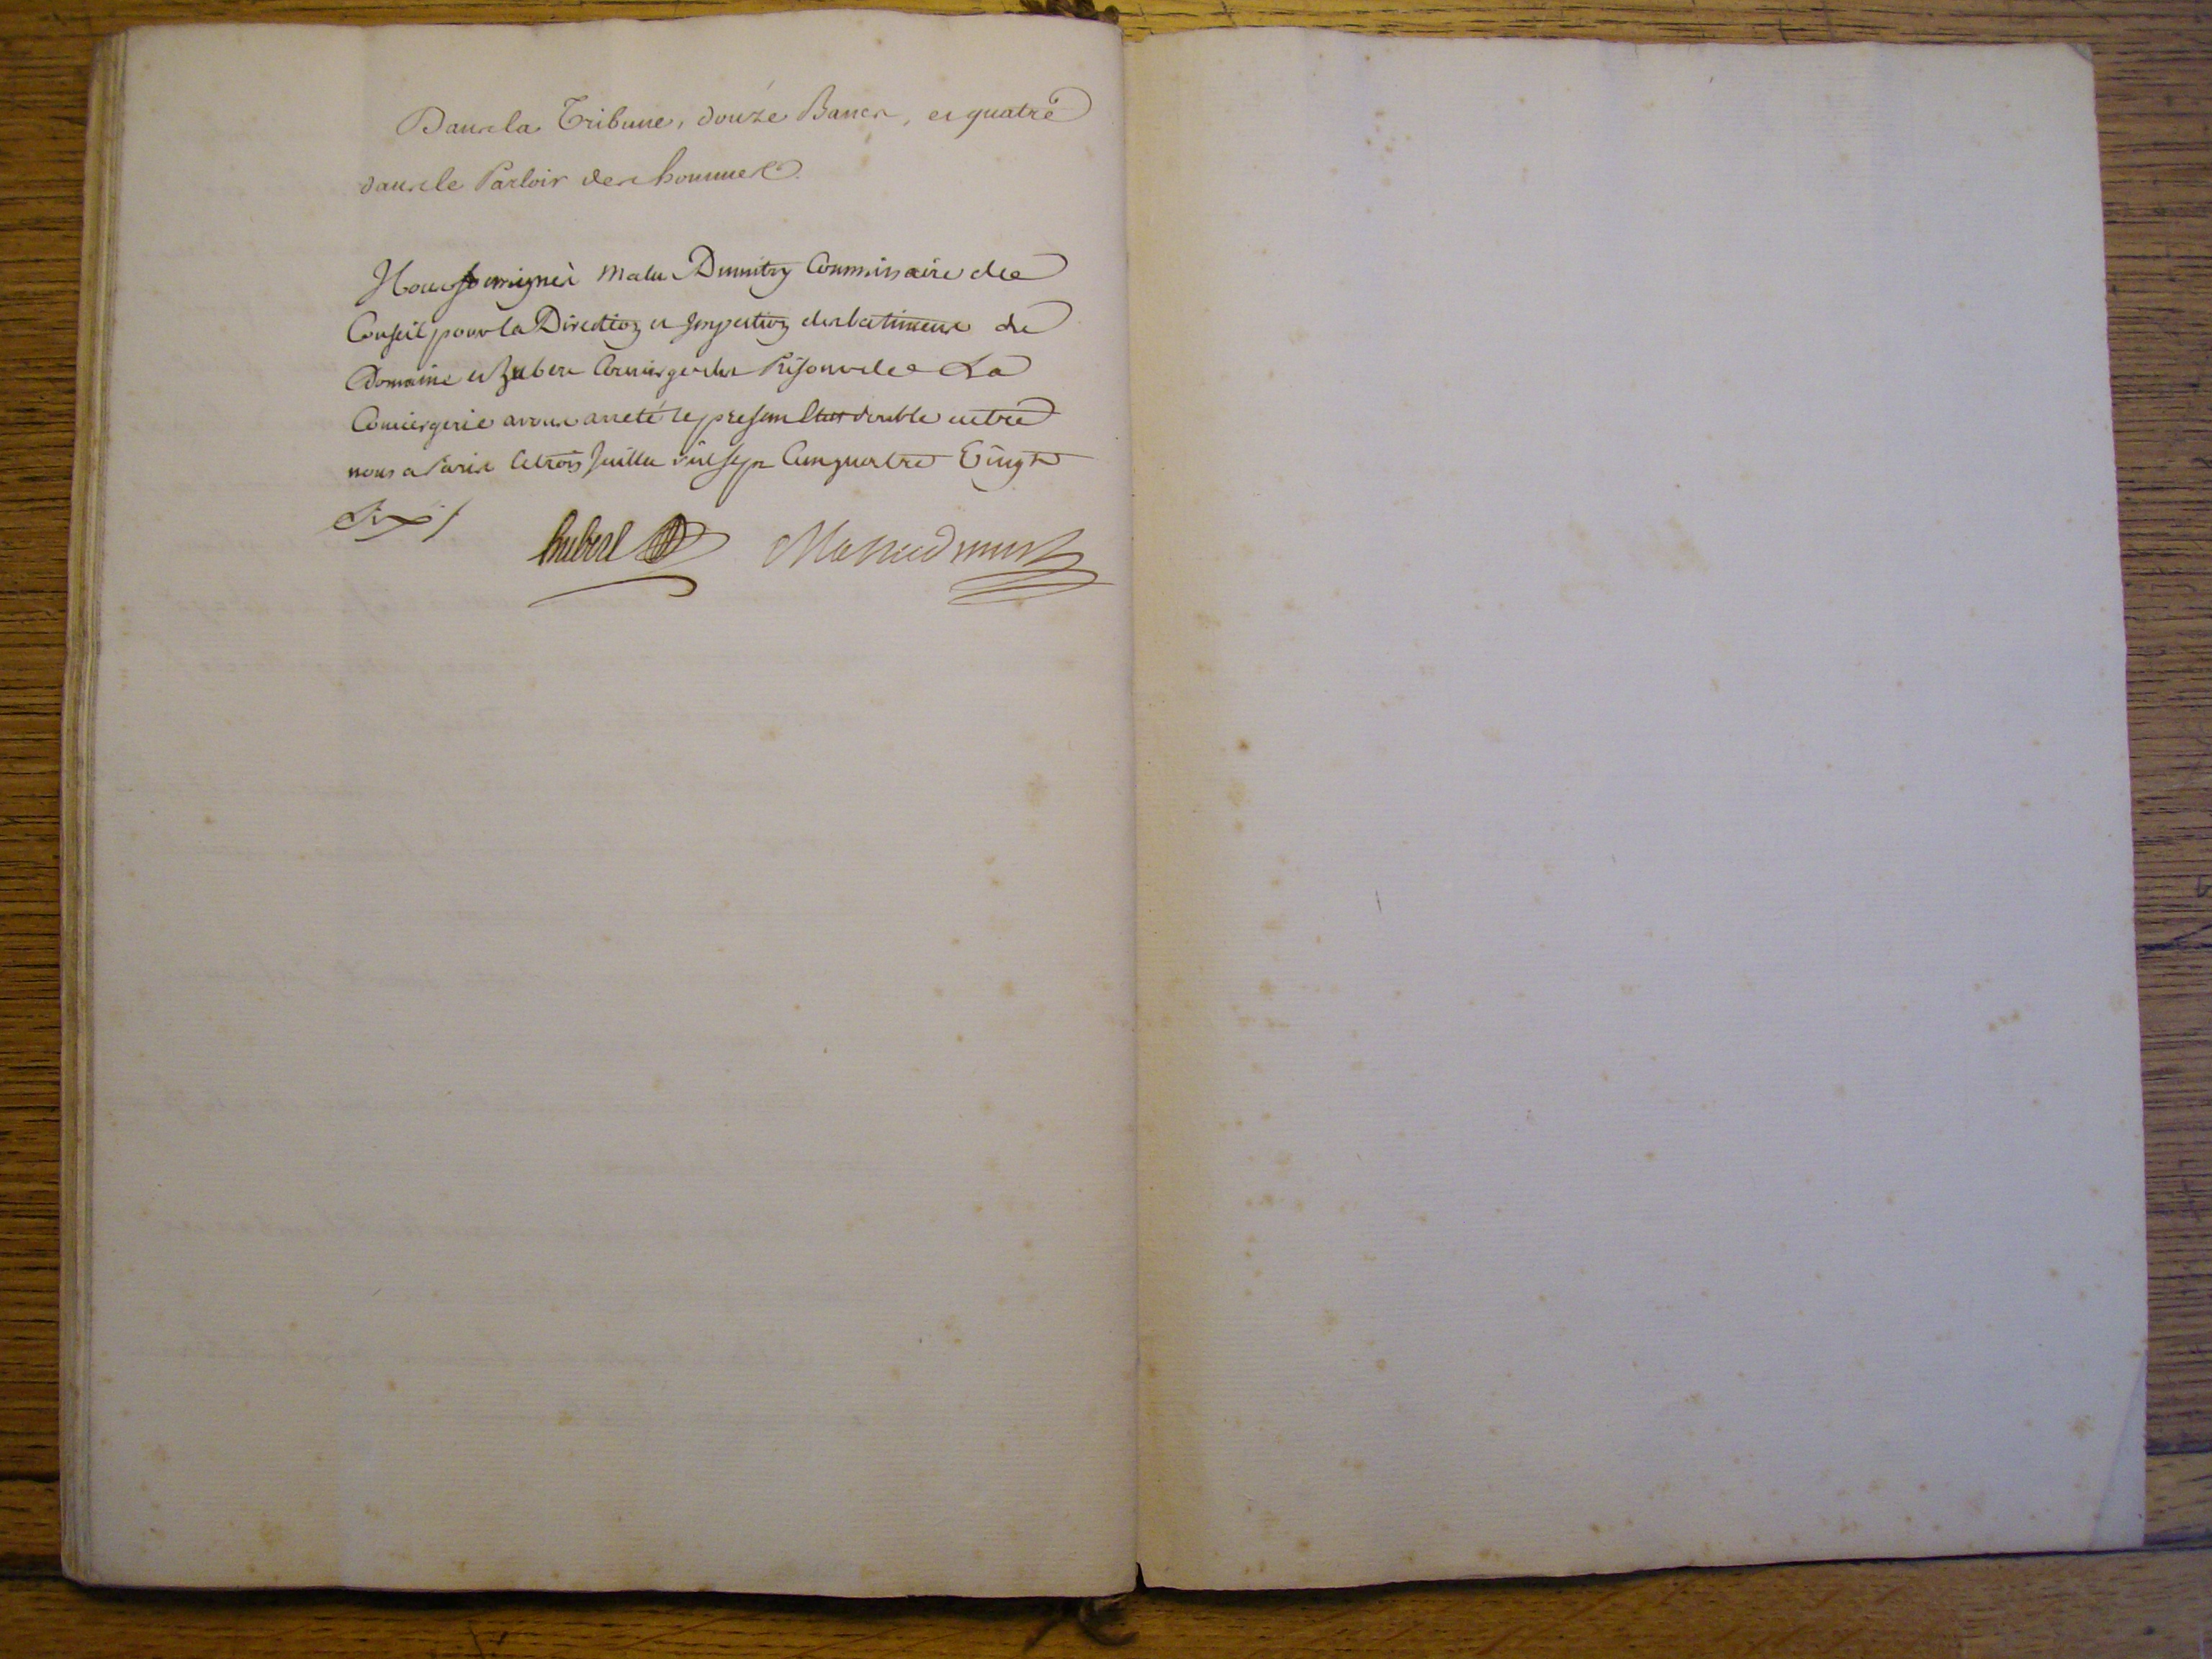 Dans la Tribune, douze Bancs, et quatre
dans le Parloir des hommes.
Nous soussignés Malus Dumitry Commissaire du
Conseil pour la Direction et Inspection des batimens du
Domaine et hubert Concierge des Prisons de La
Conciergerie avons arreté le present Etat double entre
nous a Paris le trois Juillet mil sept Cent quatre Vingt
Six /
hubert